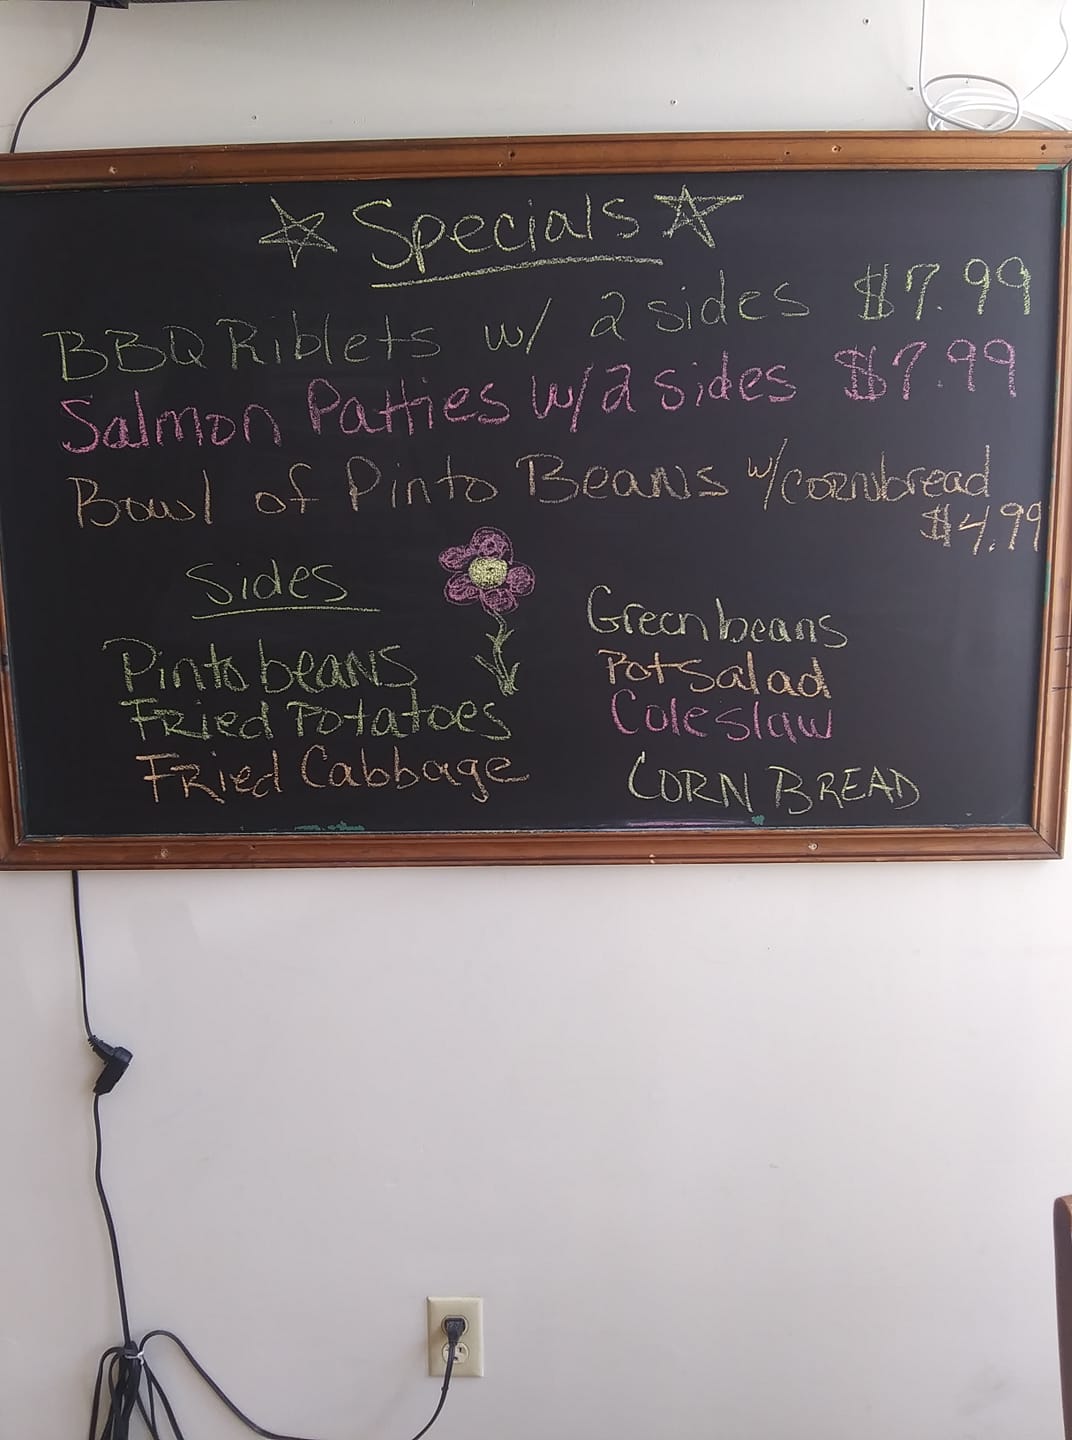 Specials
BBQ Riblets w/ 2 sides $7.99
Salmon Patties w/2 sides $7.99
Bowl of Pinto Beans w/cornbread
$4.99
Sides
Pinto beans
Fried Potatoes
Fried Cabbage
Green beans
Pot Salad
Coleslaw
CORN BREAD